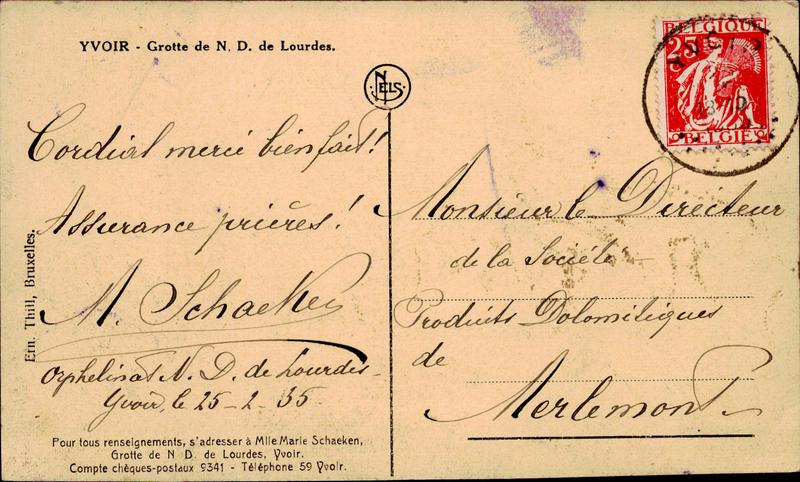 YVOIR - Grotte de N. D. de Lourdes.
NELS
BELGIQUE
25
BELGIË
YVOIR
Cordial merci bienfait!
Assurance prières!
M. Schaeken
Orphelinat N. D. de Lourdes
Yvoir, le 25-2-35
Monsieur le Directeur
de la Société
Produits Dolomitiques
de
Merlemont.
Ern. Thill, Bruxelles.
Pour tous renseignements, s'adresser à Mlle Marie Schaeken,
Grotte de N D. de Lourdes, Yvoir.
Compte chèques-postaux 9341 - Téléphone 59 Yvoir.